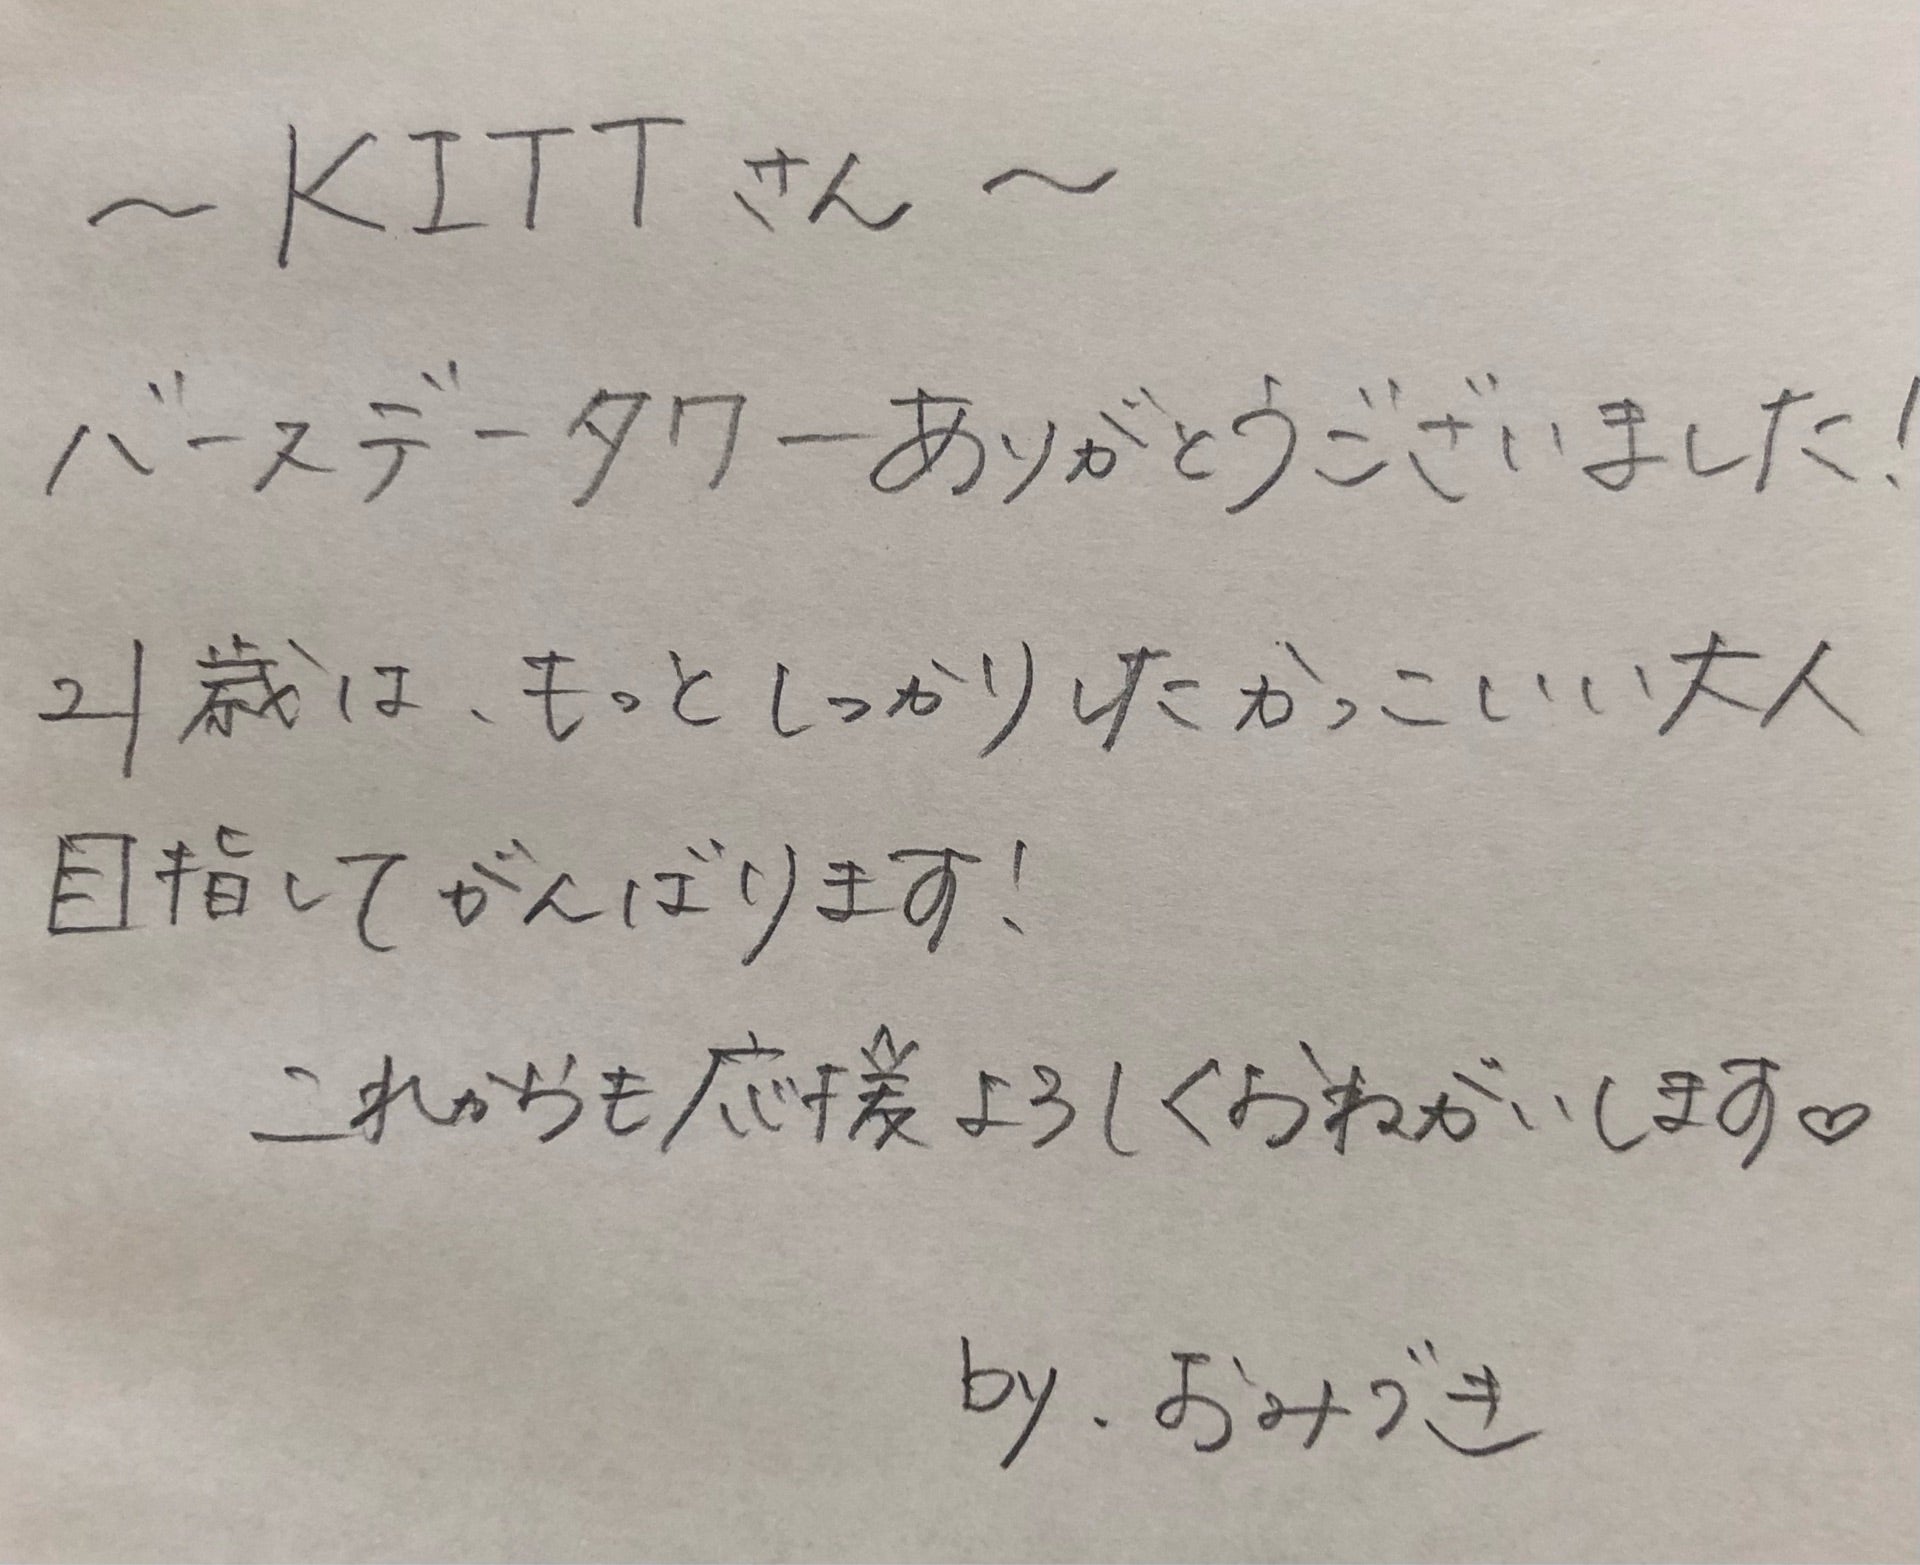 ～KITTさん～
バースデータワーありがとうございました!
21歳は、もっとしっかりしたかっこいい大人
目指してがんばります!
これからも応援よろしくおねがいします♡
by.おみづき